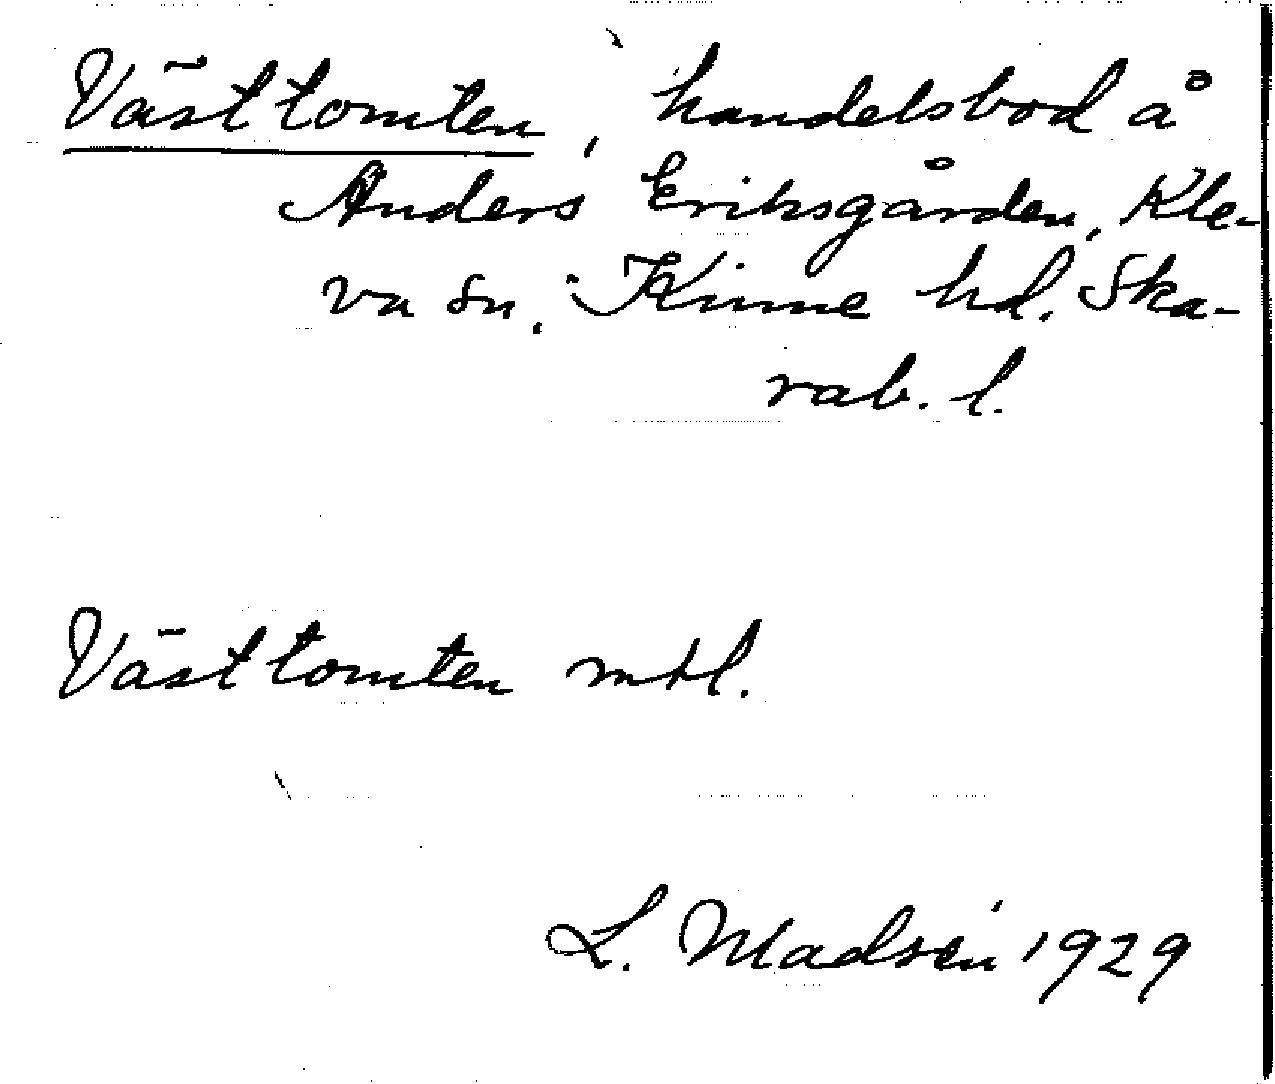 Västtomten, handelsbod å
Anders Eriksgården, Kle-
va sn, Kinne hd, Ska-
rab. l.
Västtomten mtl.
L. Madsén 1929